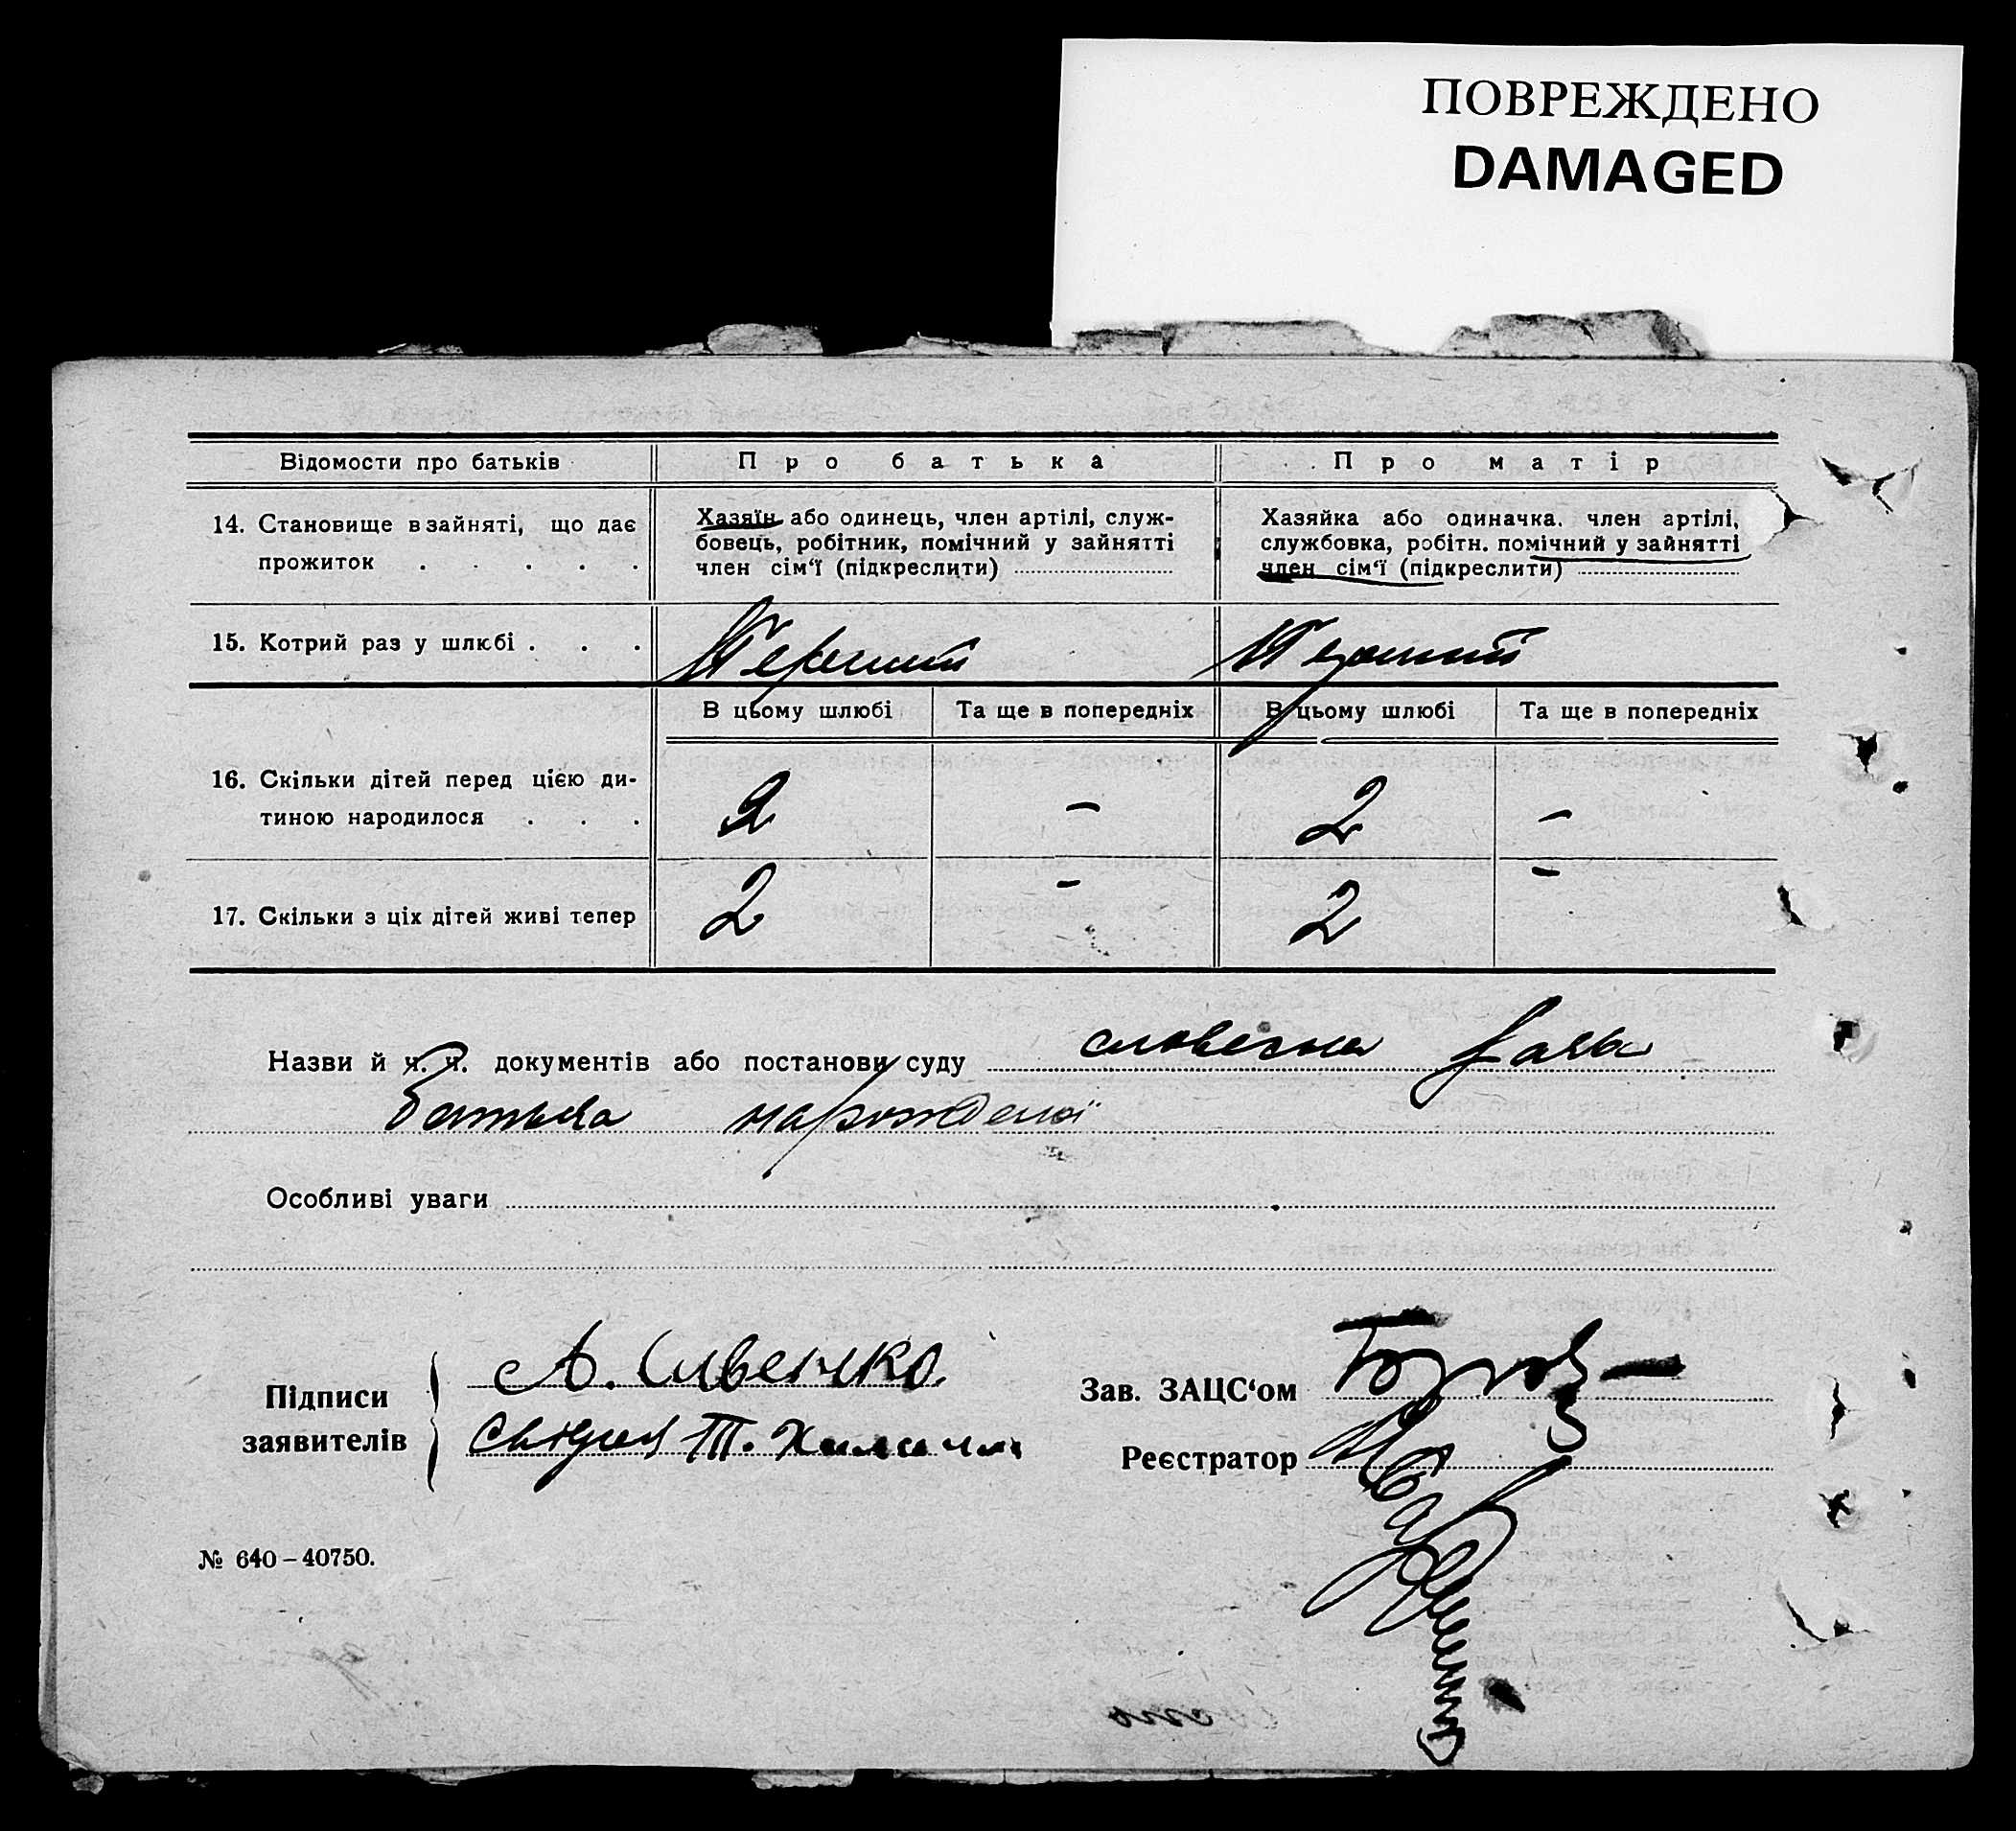 ПОВРЕЖДЕНО
DAMAGED
Відомости про батьків
Про батька
Про матір
14. Становище в зайняті, що дає
прожиток . . . . .
Хазяїн або одинець, член артілі, служ-
бовець, робітник, помічний у зайнятті
член сім‘ї (підкреслити)
Хазяйка або одиначка. член артілі,
службовка, робітн. помічний у зайнятті
член сім‘ї (підкреслити)
15. Котрий раз у шлюбі . . .
Перший
Перший
В цьому шлюбі
Та ще в попередніх
В цьому шлюбі
Та ще в попередніх
16. Скільки дітей перед цією ди-
тиною народилося . . .
2 – 2 –
17. Скільки з ціх дітей живі тепер
2 – 2 –
Назви й ч. ч. документів або постанови суду словесна
батька нарожденої
Особливі уваги
Підписи
заявителів
А.
Т.
Зав. ЗАЦС‘ом
Реєстратор
№ 640–40750.